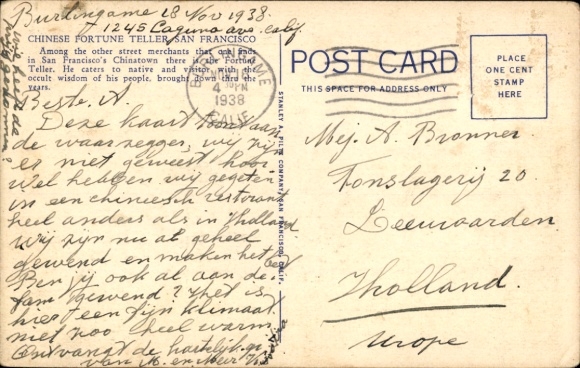 Burlingame 18 Nov 1938.
1245 Laguna ave. Calif.
CHINESE FORTUNE TELLER, SAN FRANCISCO
Among the other street merchants that one finds
in San Francisco's Chinatown there is the Fortune
Teller. He caters to native and visitor with the
occult wisdom of his people, brought down thru the
years.
BURLINGAME
4 PM
1938
CALIF.
POST CARD
THIS SPACE FOR ADDRESS ONLY
PLACE
ONE CENT
STAMP
HERE
STANLEY A. PILTZ COMPANY, SAN FRANCISCO, CALIF.
Beste A.
Deze kaart toont aan
de waarzegger, wij zijn
er niet geweest hoor.
Wel hebben wij gegeten
in een chineesch restorant
heel anders als in Holland
Wij zijn nu al geheel
gewend en maken het
Ben jij ook al aan de
gewend? Het is
hier een fijn klimaat
niet zoo heel warm
Ontvangt de hartelijk
van M. en Meir
Mej. A. Bronner.
Fonslagerij 20.
Leeuwarden.
Holland.
Urope